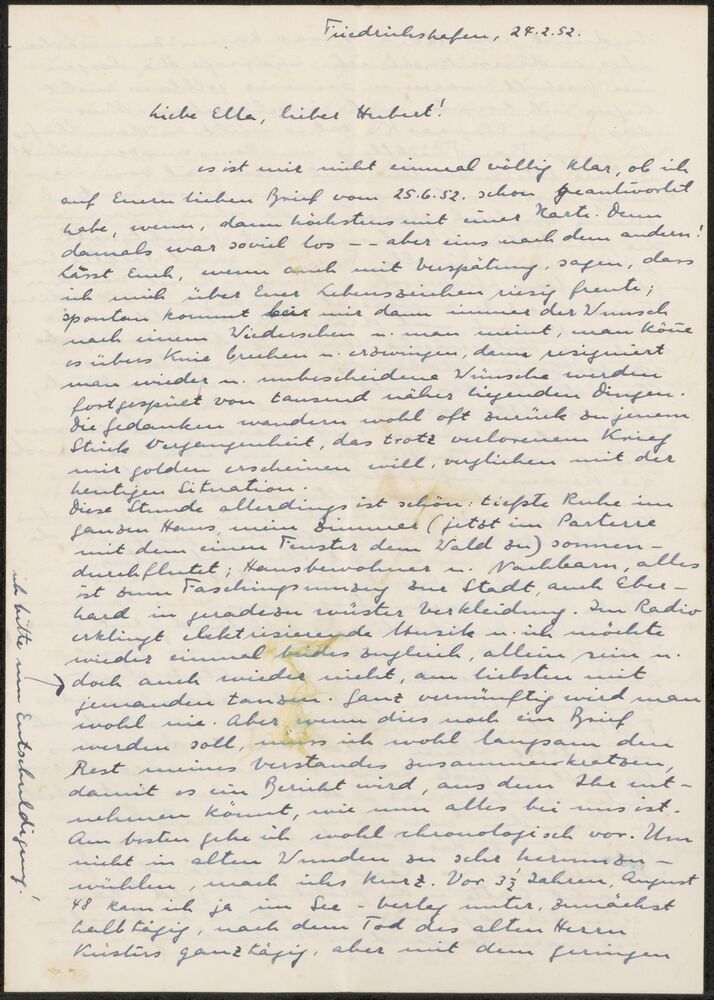 Friedrichshafen, 24.2.52.
Liebe Ella, lieber Hubert!
es ist mir nicht einmal völlig klar, ob ich
auf Euern lieben Brief vom 25.6.52. schon geantwortet
habe, wenn, dann höchstens mit einer Karte. Denn
damals war soviel los -- aber eins nach dem andern!
Lässt Euch, wenn auch mit Verspätung, sagen, dass
ich mich über Euer Lebenszeichen riesig freute;
spontan kommt bei mir dann immer der Wunsch
nach einem Wiedersehen u. man meint, man könne
es übers Knie brechen u. erzwingen, dann resigniert
man wieder u. unbescheidene Wünsche werden
fortgespület von tausend näher liegenden Dingen.
Die Gedanken wandern wohl oft zurück zu jenem
Stück Vergangenheit, das trotz verlorenem Krieg
mir golden erscheinen will, verglichen mit der
heutigen Situation.
Diese Stunde allerdings ist schön: tiefste Ruhe im
ganzen Haus, mein Zimmer (jetzt im Parterre
mit dem einen Fenster dem Wald zu) sonnen-
durchflutet; Hausbewohner u. Nachbarn, alles
ist zum Faschingsumzug zur Stadt, auch Eber-
hard in geradezu wüster Verkleidung. Im Radio
erklingt elektrisierende Musik u. ich möchte
wieder einmal beides zugleich, allein sein u.
doch auch wieder nicht, am liebsten mit
jemanden tanzen. Ganz vernünftig wird man
wohl nie. Aber wenn dies noch ein Brief
werden soll, muss ich wohl langsam den
Rest meines Verstandes zusammenkratzen,
damit es ein Bericht wird, aus dem Ihr ent-
nehmen könnt, wie nun alles bei uns ist.
Am besten gehe ich wohl chronologisch vor. Um
nicht in alten Wunden zu sehr herumzu-
wühlen, mach ichs kurz. Vor 3½ Jahren, August
48 kam ich ja im See-Verlag unter, zunächst
halbtägig, nach dem Tod des alten Herrn
Küsters ganztägig, aber mit dem geringen
ich bitte um Entschuldigung!